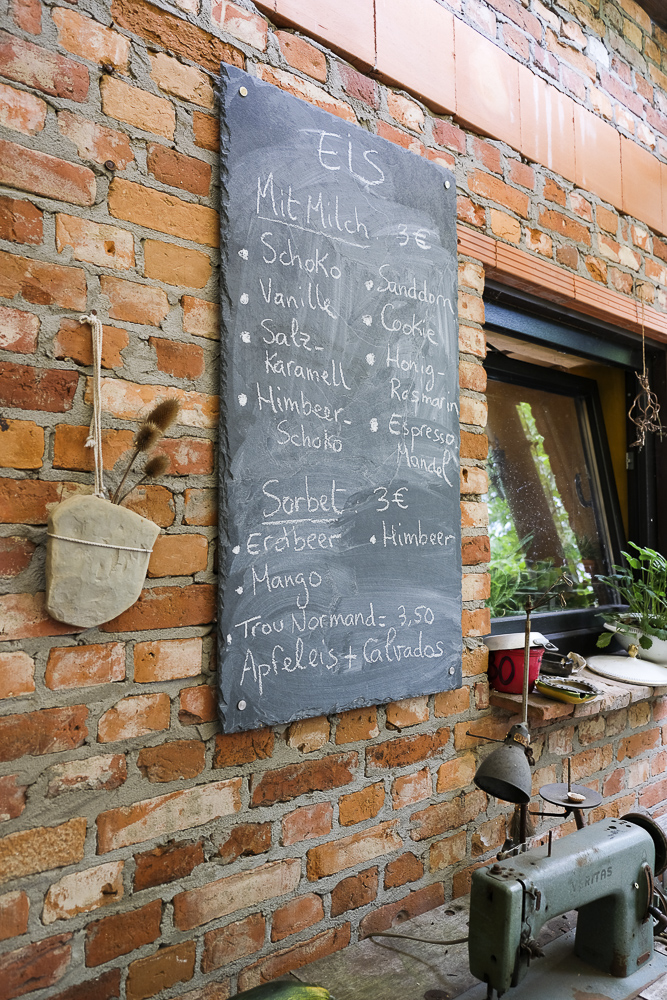 Eis
Mit Milch 3€
• Schoko
• Vanille
• Salz-
Karamell
• Himbeer-
Schoko
• Sanddorn
• Cookie
• Honig-
Rosmarin
• Espresso
Mandel
Sorbet 3€
• Erdbeer • Himbeer
• Mango
• Trou Normand = 3,50
Apfeleis + Calvados
VERITAS